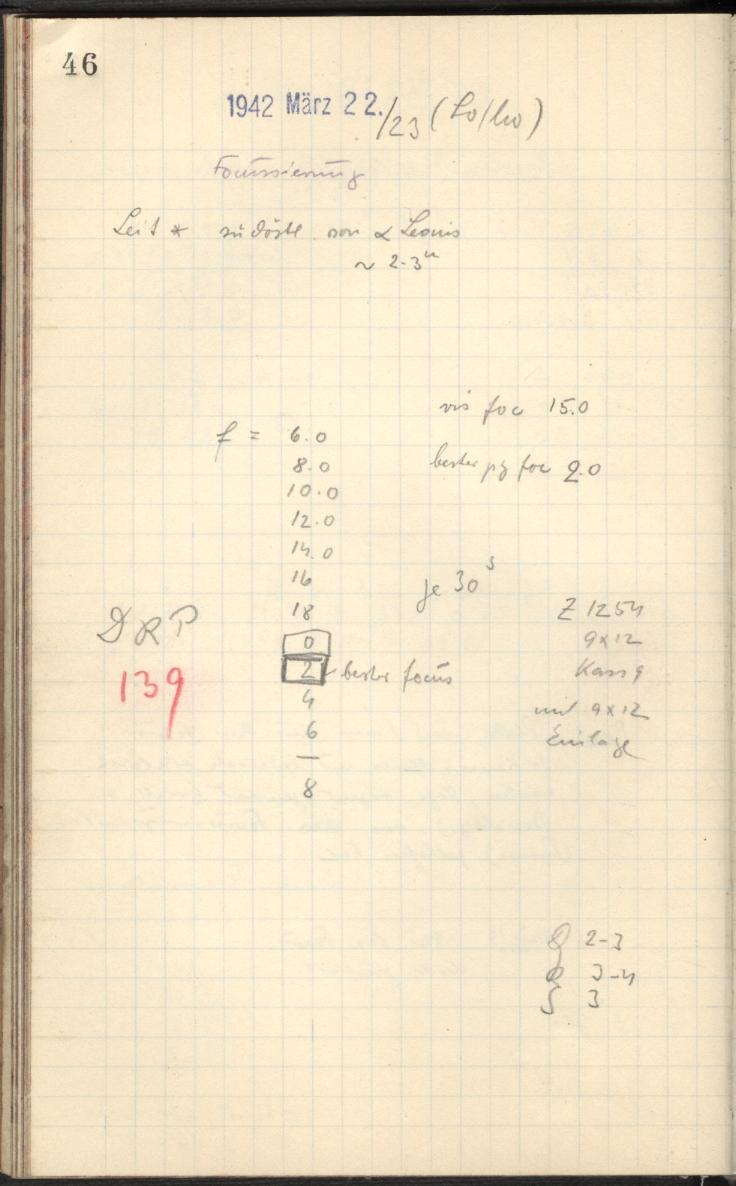 46
1942 März 22./23 (Lo/ho)
Focussierung
Leit * südöstl von α Leonis
~ 2-3ᵐ
vis foc 15.0
f = 6.0
8.0
bester pg foc 2.0
10.0
12.0
14.0
16
je 30ˢ
18
Z 1254
DRP
0
9x12
139
2 bester focus
Kass 9
4
mit 9x12
6
Einlage
—
8
Q 2-3
3-4
S 3